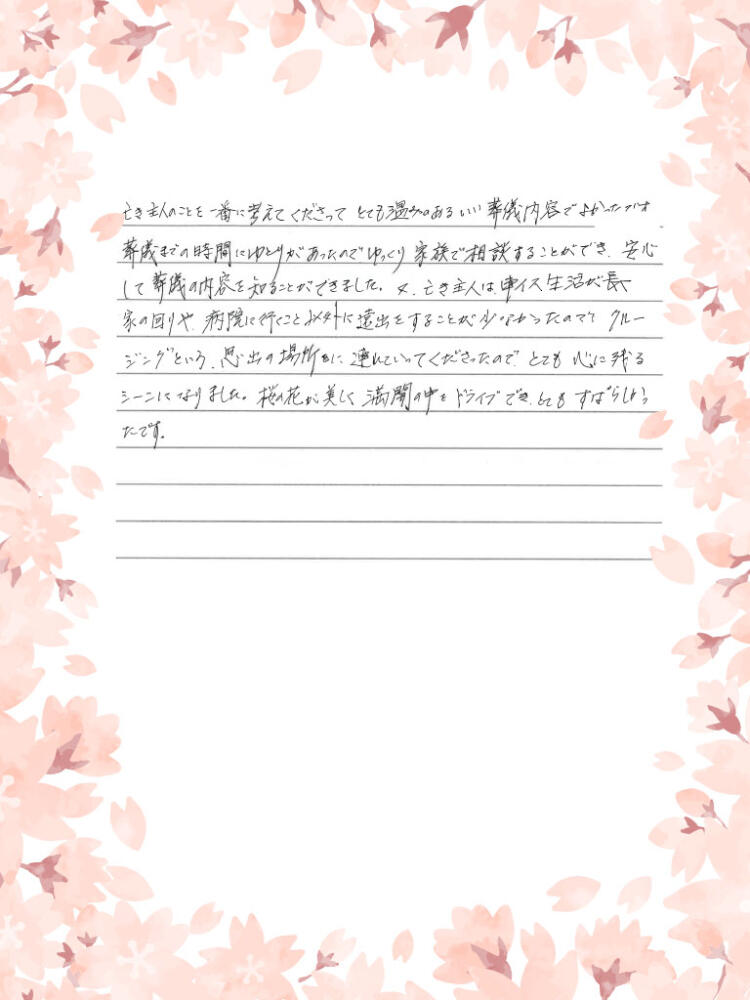 亡き主人のことを一番に考えてくださって とても温かみのあるいい葬儀内容でよかったです
葬儀までの時間にゆとりがあったのでゆっくり家族で相談することができ、安心
して葬儀の内容を知ることができました。又、亡き主人は車イス生活が長く
家の回りや、病院に行くこと以外に遠出をすることが少なかったので クルー
ジングという、思出の場所に連れていってくださったので、とても心に残る
シーンになりました。桜の花が美しく満開の中をドライブでき、とてもすばらしかっ
たです。